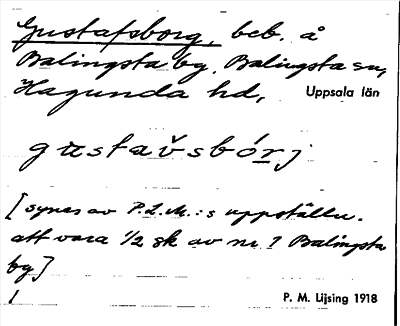 Gustafsborg, beb. å
Balingsta bg, Balingsta sn,
Hagunda hd, Uppsala län
gustav̌sbórj
[synes av P.L.M.:s uppställn.
att vara 1/2 sk av nr. 1 Balingsta
bg]
P. M. Lijsing 1918